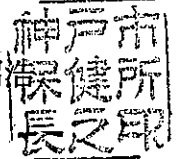 神戸市
保健所
長之印